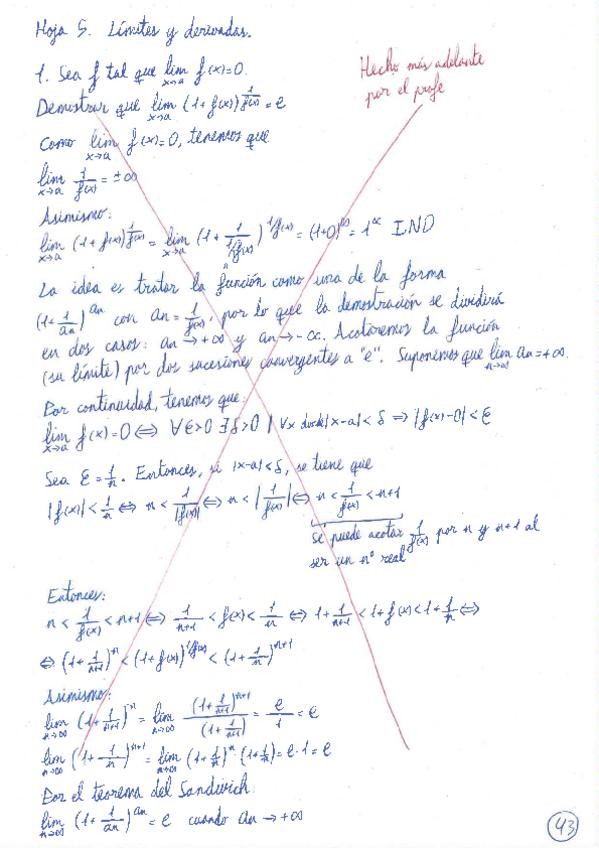 Hoja 5. Límites y derivadas.
Hecho más adelante
por el profe
1. Sea f tal que lim x→a f(x)=0.
Demostrar que lim x→a (1+f(x))^(1/f(x)) = e
Como lim x→a f(x)=0, tenemos que
lim x→a 1/f(x) = ±∞
Asimismo:
lim x→a (1+f(x))^(1/f(x)) = lim x→a (1+1/(1/f(x)))^(1/f(x)) = (1+0)^∞ = 1^∞ IND
La idea es tratar la función como una de la forma
(1+1/an)^an con an = 1/f(x), por lo que la demostración se dividirá
en dos casos: an→+∞ y an→-∞. Acotaremos la función
(su límite) por dos sucesiones convergentes a "e". Suponemos que lim n→∞ an=+∞.
Por continuidad, tenemos que:
lim x→a f(x)=0 ⇔ ∀ε>0 ∃δ>0 | ∀x donde |x-a|<δ ⇒ |f(x)-0|<ε
Sea ε=1/n. Entonces, si |x-a|<δ, se tiene que
|f(x)|<1/n ⇔ n<1/|f(x)| ⇔ n<|1/f(x)| ⇔ n<1/f(x)<n+1
se puede acotar 1/f(x) por n y n+1 al
ser un nº real
Entonces:
n<1/f(x)<n+1 ⇔ 1/(n+1)<f(x)<1/n ⇔ 1+1/(n+1)<1+f(x)<1+1/n ⇔
⇔ (1+1/(n+1))^n < (1+f(x))^(1/f(x)) < (1+1/n)^(n+1)
Asimismo:
lim n→∞ (1+1/(n+1))^n = lim n→∞ (1+1/(n+1))^(n+1)/(1+1/(n+1)) = e/1 = e
lim n→∞ (1+1/n)^(n+1) = lim n→∞ (1+1/n)^n · (1+1/n) = e·1 = e
Por el teorema del Sandwich:
lim n→∞ (1+1/an)^an = e cuando an→+∞
43